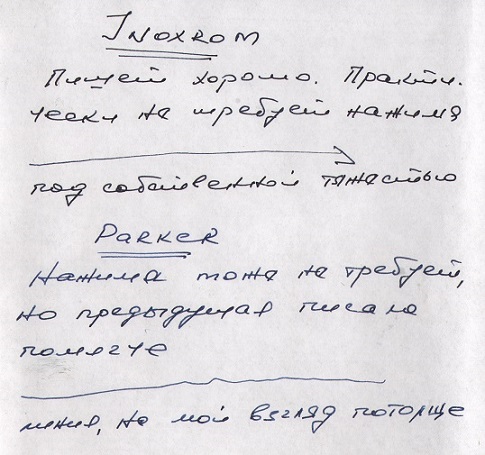 INOXROM
Пишет хорошо. Практи-
чески не требует нажима
под собственной тяжестью
PARKER
Нажима тоже не требует,
но предыдущая писала
помягче
линия, на мой взгляд потолще